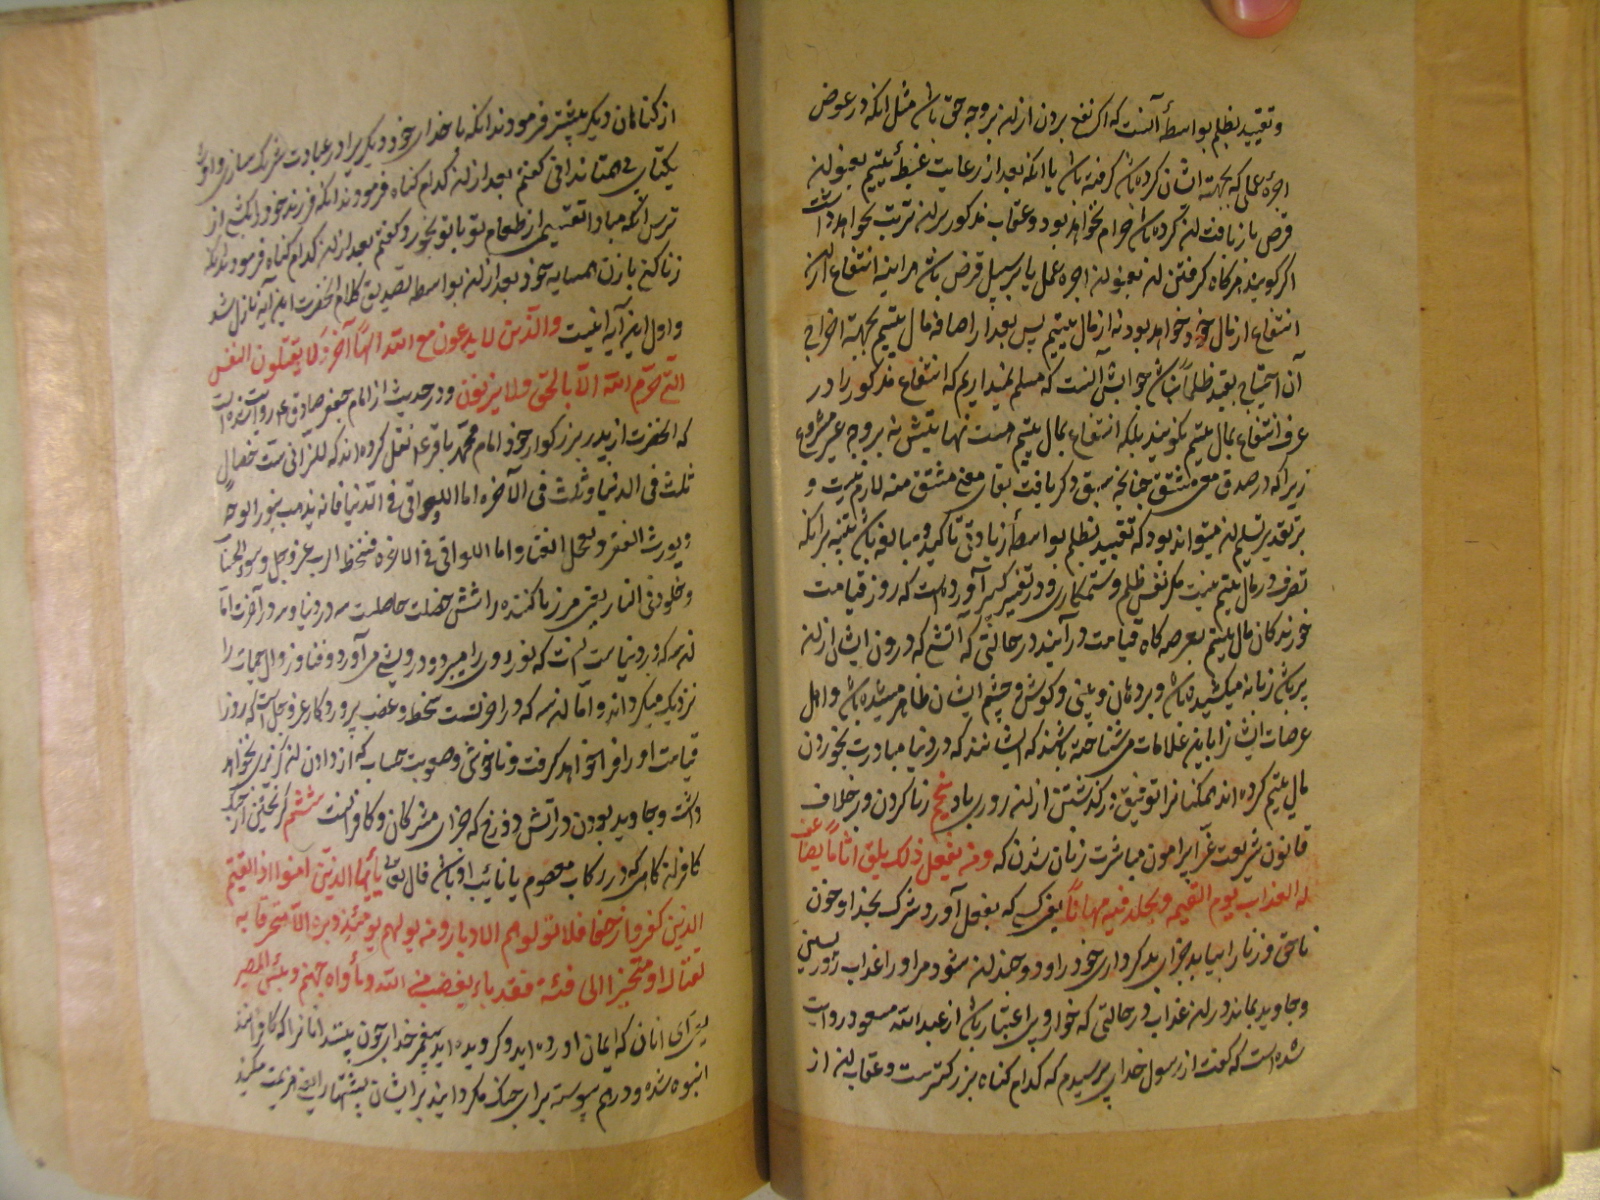 و تقیید بظلم بواسطهٔ آنست که اگر نفع بردن از ان بر وجه حق باشد مثل انکه در عوض
اجرهٔ عملی که بجهة ایشان کرده باشد گرفته باشد یا انکه بعد از رعایت غبطهٔ یتیم بعنوان
قرض باز یافت ان کرده باشد حرام نخواهد بود و عقاب مذکور بر ان ترتب نخواهد داشت
اگر گویند هرگاه گرفتن ان بعنوان اجره عمل یا بر سبیل قرض باشد هر اینه انتفاع از ان
انتفاع از مال خود خواهد بود نه از مال یتیم پس بعد از اضافه مال یتیم بجهة اخراج
آن احتیاج بقید ظلماً نباشد جوابش آنست که مسلم نمیداریم که انتفاع مذکور را در
عرف انتفاع بمال یتیم نگویند بلکه انتفاع بمال یتیم هست نهایتش نه بر وجه غیر مشروع
زیرا که در صدق معنی مشتق چنانچه سبق ذکر یافت بقای معنی مشتق منه لازم نیست و
بر تقدیر تسلیم ان میتواند بود که تقیید بظلم بواسطهٔ زیادتی تاکید و مبالغه باشد بتنبیه بر انکه
تصرف در مال یتیم نیست مگر نفس ظلم و ستمکاری و در تفسیر کبیر آورده است که روز قیامت
خورندکان مال یتیم بعرصه کاه قیامت در آیند در حالتی که آتش که درون ایشان از ان
پر باشد زبانه میکشیده باشد و بر دهان و بینی و گوش و چشم ایشان ظاهر میشده باشد و اهل
عرصات ایشان را باین علامات می شناخته باشند که ایشانند که در دنیا مبادرت بخوردن
مال یتیم کرده اند همکنانرا توفیق در گذشتن از ان روزی باد پنجم زنا کردن و بر خلاف
قانون شریعت غرّا پیرامون مباشرت زنان شدن که و من یفعل ذلک یلق اثاماً یضاعف
له العذاب یوم القیمه و یخلد فیه مهاناً یعنی کسی که بفعل آورد شرک بخدا و خون
ناحق و زنا را بیابد جزای بد کرداری خود را و دو چندان شود مر او را عذاب روز پسین
و جاوید بماند در ان عذاب در حالتی که خوار و بی اعتبار باشد از عبد الله مسعود روایت
شده است که گفت از رسول خدای پرسیدم که کدام کناه بزرکترست و عقاب ان از
از کناهان دیگر بیشتر فرمودند انکه با خدای خود دیگری را در عبادت شریک سازی و او را
یکتای بی همتا ندانی گفتم بعد از ان کدام کناه فرمودند انکه فرزند خود را بکشی از
ترس انکه مبادا تعیش از طعام تو با تو بخورد گفتم بعد از ان کدام کناه فرمودند انکه
زنا کنی با زن همسایه خود بعد از ان بواسطه تصدیق کلام انحضرت این آیه نازل شد
و اول این آیه اینست والذین لا یدعون مع الله الهاً آخر و لا یقتلون النفس
التی حرّم الله الّا بالحق ولا یزنون و در حدیث از امام جعفر صادق ع روایت شده است
که انحضرت از پدر بزرکوار خود امام محمد باقر ع نقل کرده اند که للزانی ست خصال
ثلث فی الدنیا و ثلث فی الآخره اما اللواتی فی الدنیا فانه یذهب بنور الوجه
و یورث الفقر و یعجل الفناء و اما اللواتی فی الاخره فسخط الرب عز و جل و سوء الحساب
و خلود فی النار یعنی مر زنا کننده را شش خصلت حاصلست سه در دنیا و سه در آخرت اما
ان سه که در دنیاست انست که نور روی را میبرد و درویشی می آورد و فنا و زوال حیات را
نزدیک میکرداند و اما ان سه که در آخرتست سخط و غضب پروردکار عز و جل است که روز
قیامت او را فرا خواهد کرفت و ناخوشی و صعوبت حساب که از دادن ان کزیری نخواهد
داشت و جاوید بودن در اتش دوزخ که جزای مشرکان و کافرانست ششم کریختن از جنگ
کافران کاهی که در رکاب معصوم یا نائب او باشد قال تعالی یا أیها الذین امنوا اذا لقیتم
الذین کفروا زحفا فلا تولوهم الادبار و من یولهم یومئذ دبره الا متحرفا
لقتال او متحیزا الی فئة فقد باء بغضب من الله و مأواه جهنم و بئس المصیر
یعنی ای انان که ایمان اورده اید و کرویده اید بپیغمبر خدای چون ببینید انانرا که کافرانند
انبوه شده و در هم پیوسته برای جنگ مکردانید بر ایشان پشتها